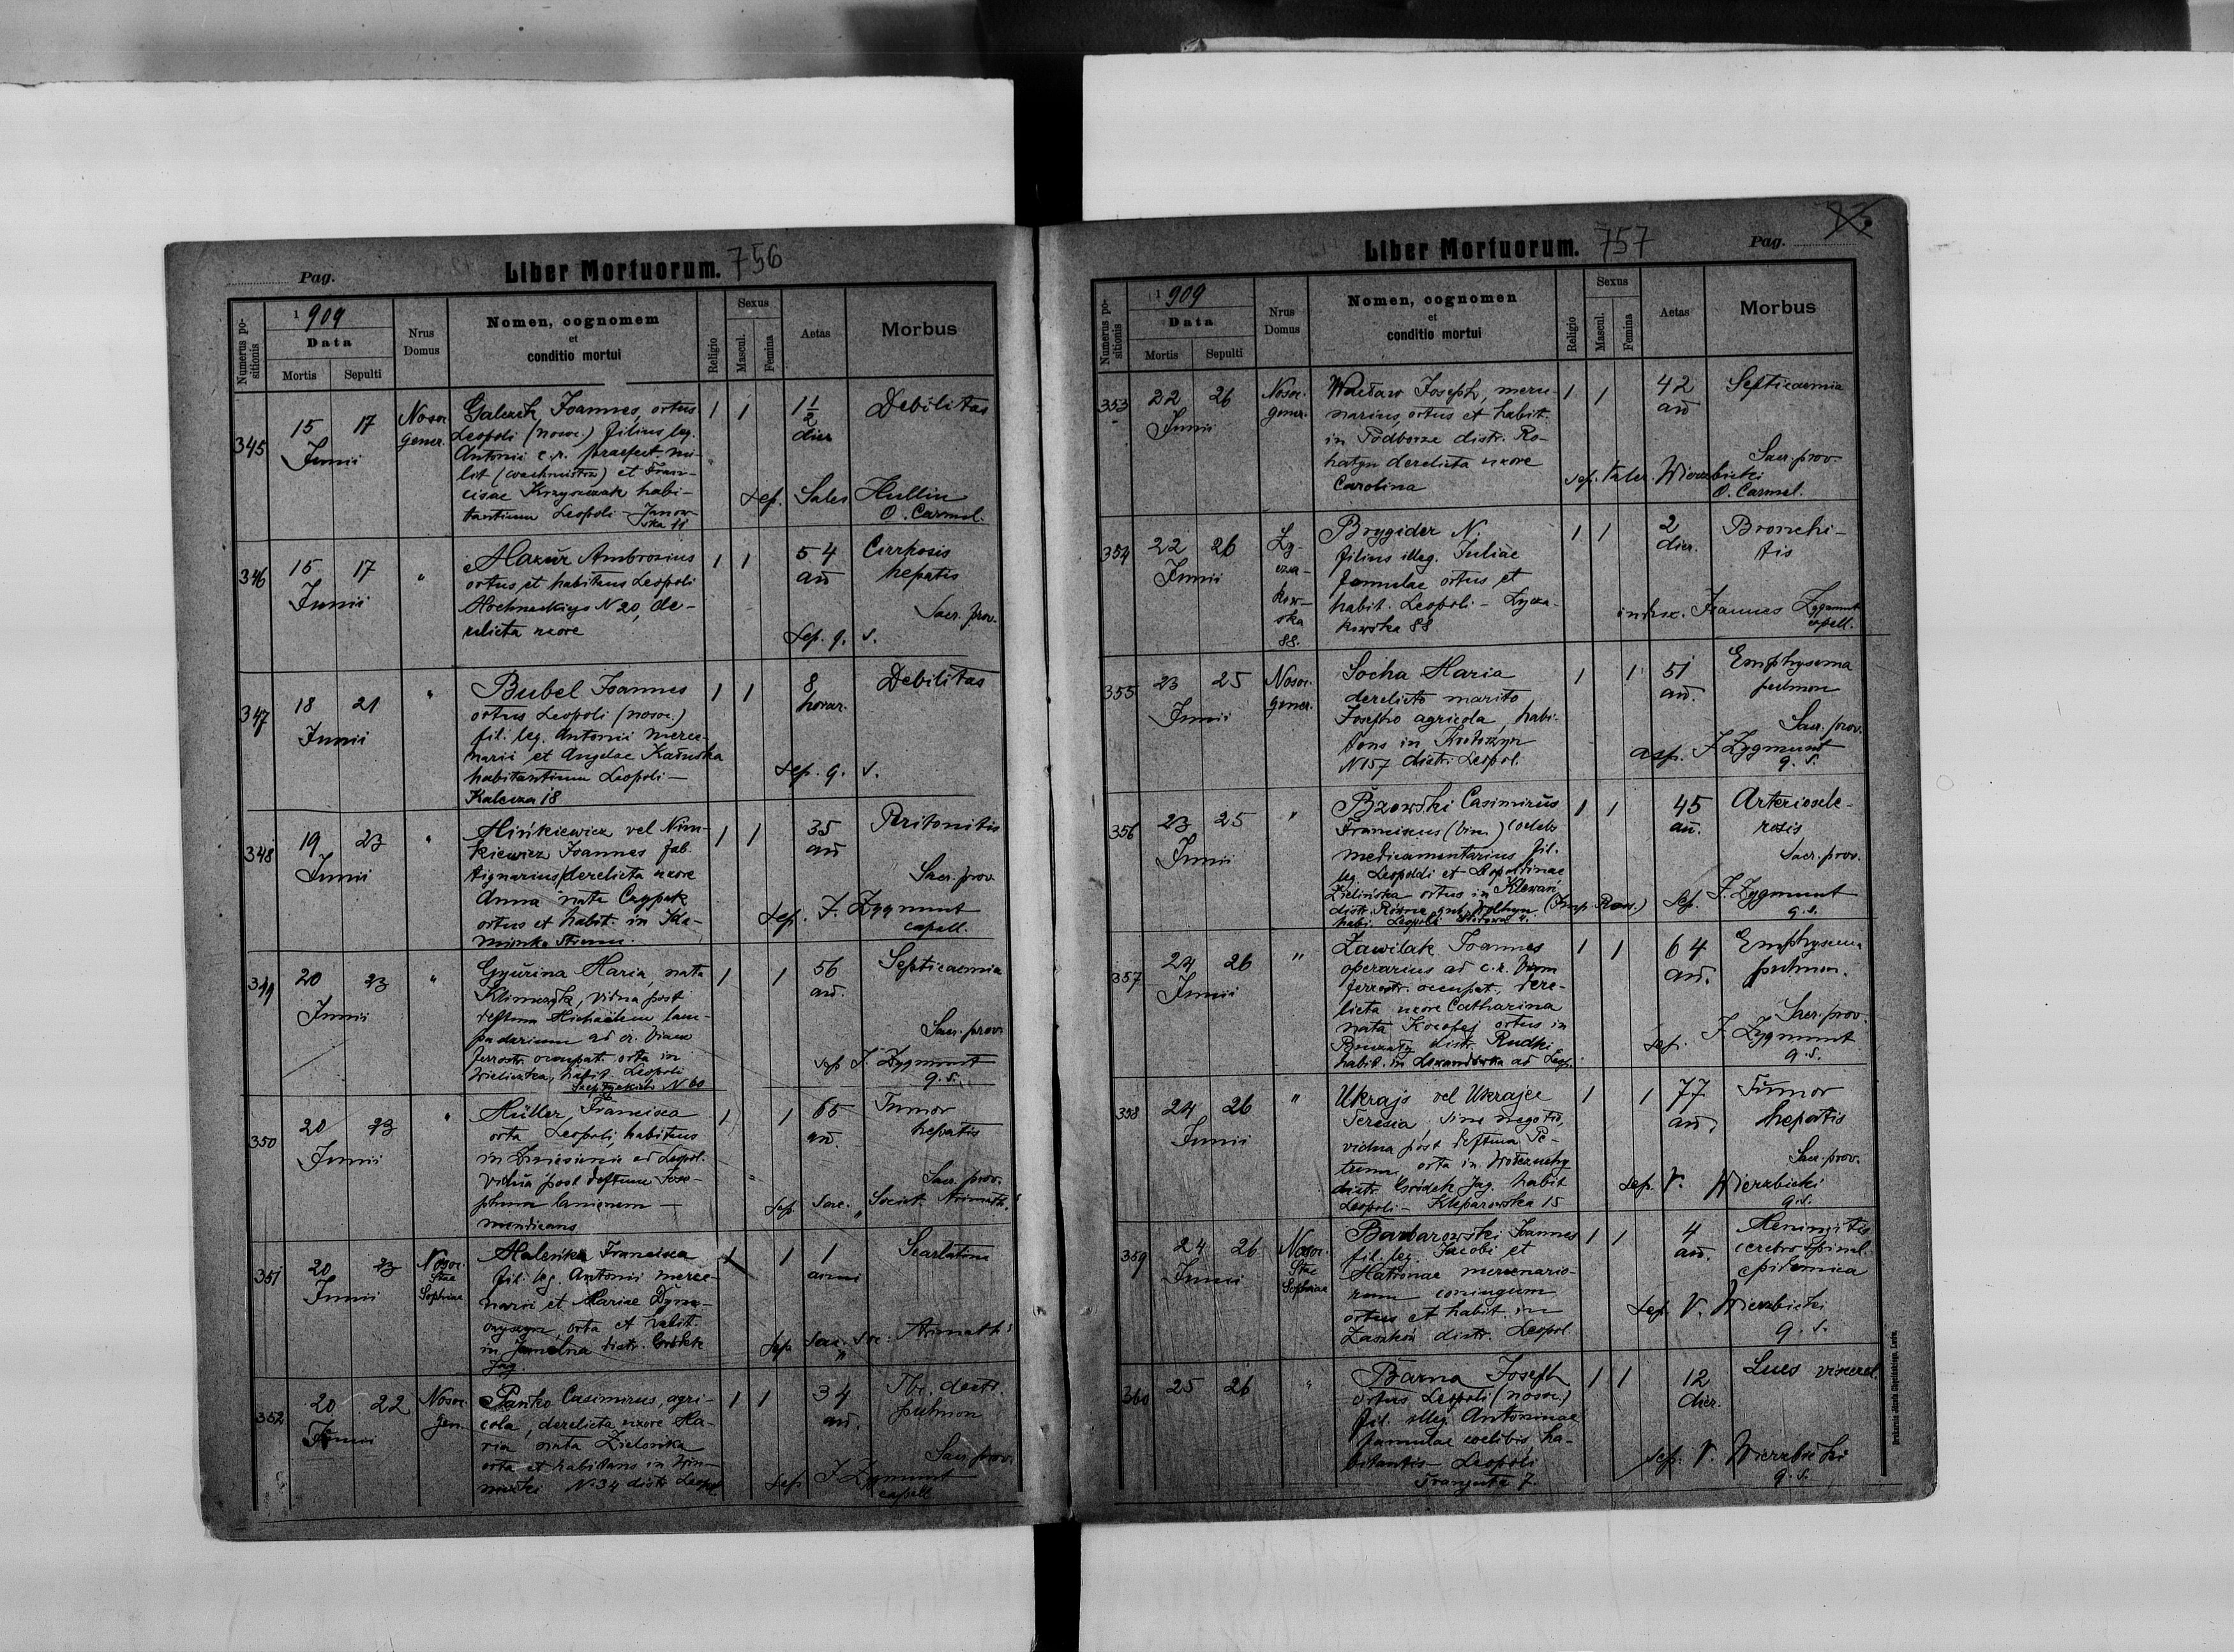 Pag.
Liber Mortuorum. 756
Numerus positionis
1909
Data
Mortis Sepulti
Nrus Domus
Nomen, cognomem
et
conditio mortui
Religio
Sexus
Mascul. Femina
Aetas
Morbus
345
15 17
Junii
Nosoc. gener.
Joannes, ortus
Leopoli (nosoc.) filius leg.
Antonii c.r. praefect. mi-
lit et Fran-
cisae habi-
tantium Leopoli - Janow-
ska 11
1 1
1 1/2
dier
Debilitas
Sep. Sales Hullin
O. Carmel.
346
15 17
Junii
"
Mazur Ambrosius
ortus et habitans Leopoli
Mochnackiego N 20, de-
relicta uxore
1 1
54
an̄
Cirrhosis
hepatis
Sacr. prov.
Sep. q. s.
347
18 21
Junii
"
Bubel Joannes
ortus Leopoli (nosoc.)
fil. leg. Antonii merce-
narii et Angelae
habitantium Leopoli —
Kalecza 18
1 1
8
horar.
Debilitas
Sep. q. s.
348
19 23
Junii
"
Mińkiewicz vel Nim-
kiewicz Joannes fab.
tignarius derelicta uxore
Anna nata
ortus et habit. in Ka-
mionka
1 1
35
an̄
Peritonitis
Sacr. prov.
Sep. J. Zygmunt
capell.
349
20 23
Junii
"
Gyurina Maria, nata
vidua post
deftum Michaelem lam-
padarium ad cr. Viam
ferrestr. occupat. orta in
Wieliczka, habit. Leopoli
N 60
1 1
56
an̄.
Septicaemia
Sacr. prov.
Sep J. Zygmunt
q. s.
350
20 23
Junii
"
Müller, Francisca
orta Leopoli, habitans
in ad Leopol.
vidua post deftum Jose-
phum lanionem —
mendicans
1 1
65
an̄.
Tumor
hepatis
Sacr. prov.
Sep. Sac. Societ.
351
20 23
Junii
Nosoc.
Stae
Sophiae
Francisca
fil. leg. Antonii merce-
narii et Mariae
orta et habit.
in distr. Gródek
Jag.
1 1
1
anni
Scarlatina
Sep. Sac. Soc:
352
20 22
Junii
Nosoc.
Gen.
Pańko Casimirus, agri-
cola, derelicta uxore Ma-
ria nata
orta et habitans in Win-
niczki N 34 distr Leopol
1 1
34
an̄.
Tbc. dextr.
pulmon
Sacr. prov.
Sep J. Zygmunt
capell
Liber Mortuorum. 757
Pag.
Numerus positionis
1909
Data
Mortis Sepulti
Nrus Domus
Nomen, cognomen
et
conditio mortui
Religio
Sexus
Mascul. Femina
Aetas
Morbus
353
22 26
Junii
Nosoc.
gener.
Joseph, merce-
narius, ortus et habit.
in Podborze distr. Ro-
hatyn derelicta uxore
Carolina
1 1
42
an̄
Septicaemia
Sacr. prov.
Sep. Valer. Wierzbicki
O. Carmel.
354
22 26
Junii
Ły-
cza-
kow-
ska
88.
Brygider N.
filius illeg. Juliae
famulae ortus et
habit. Leopoli - Łycza-
kowska 88
1 1
2
dier.
Bronchi-
tis
Joannes Zygmunt
capell.
355
23 25
Junii
Nosoc.
gener.
Socha Maria
derelicto marito
Josepho agricola, habi-
tans in
N 157 distr. Leopol.
1 1
51
an̄.
Emphysema
pulmon
Sacr. prov.
asp. J. Zygmunt
q. s.
356
23 25
Junii
"
Bzowski Casimirus
Franciscus (bin.) coelebs
medicamentarius fil.
leg. Leopoldi et Leopoldinae
Zielińska ortus in Klewań
distr. Równe gub. Wolhyn. (Imp. Ros.)
habi. Leopoli
1 1
45
an̄.
Arteriosclerosis
Sacr. prov.
Sep. J. Zygmunt
q. s.
357
24 26
Junii
"
Zawilak Joannes
operarius ad c.r. Viam
ferrestr. occupat., dere-
licta uxore Catharina
nata ortus in
distr. Rudki
habit. in Lewandówka ad Leop.
1 1
64
an̄.
Emphysema
pulmon.
Sacr. prov.
Sep. J. Zygmunt
q. s.
358
24 26
Junii
"
Ukrajs vel Ukrajce
Teresia, sine negotio,
vidua post deftum Pe-
trum, orta in
distr. Gródek Jag. habit
Leopoli - Kleparowska 15
1 1
77
an̄.
Tumor
hepatis
Sacr. prov.
Sep. V. Wierzbicki
q. s.
359
24 26
Junii
Nosoc.
Stae
Sophiae
Barbarowski Joannes
fil. leg. Jacobi et
Matronae mercenario-
rum coniugum
ortus et habit. in
Zaszków distr. Leopol.
1 1
4
an̄.
Meningitis
cerebrospinal.
epidemica
Sep. V. Wierzbicki
q. s.
360
25 26
"
Barna Joseph
ortus Leopoli (nosoc.)
fil. illeg. Antoninae
famulae coelibis ha-
bitantis Leopoli
Franciszk 7.
1 1
12
dier.
Lues visceral.
Sep. V. Wierzbicki
q. s.